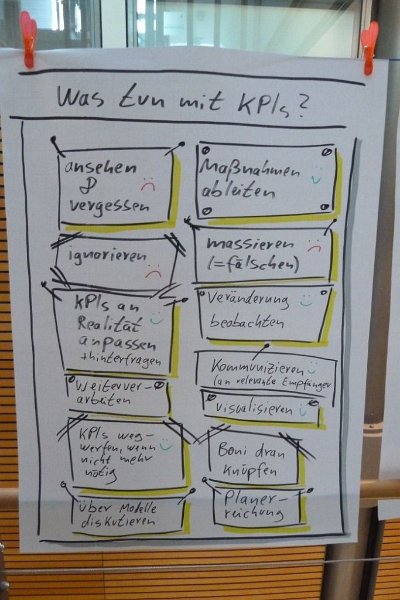 Was tun mit KPIs?
ansehen
&
vergessen
Maßnahmen
ableiten
ignorieren
massieren
(=fälschen)
KPIs an
Realität
anpassen
+hinterfragen
Veränderung
beobachten
Kommunizieren
(an relevante Empfänger
Weiterver-
arbeiten
visualisieren
KPIs weg-
werfen, wenn
nicht mehr
nötig
Boni dran
Knüpfen
über Modelle
diskutieren
Planer-
reichung